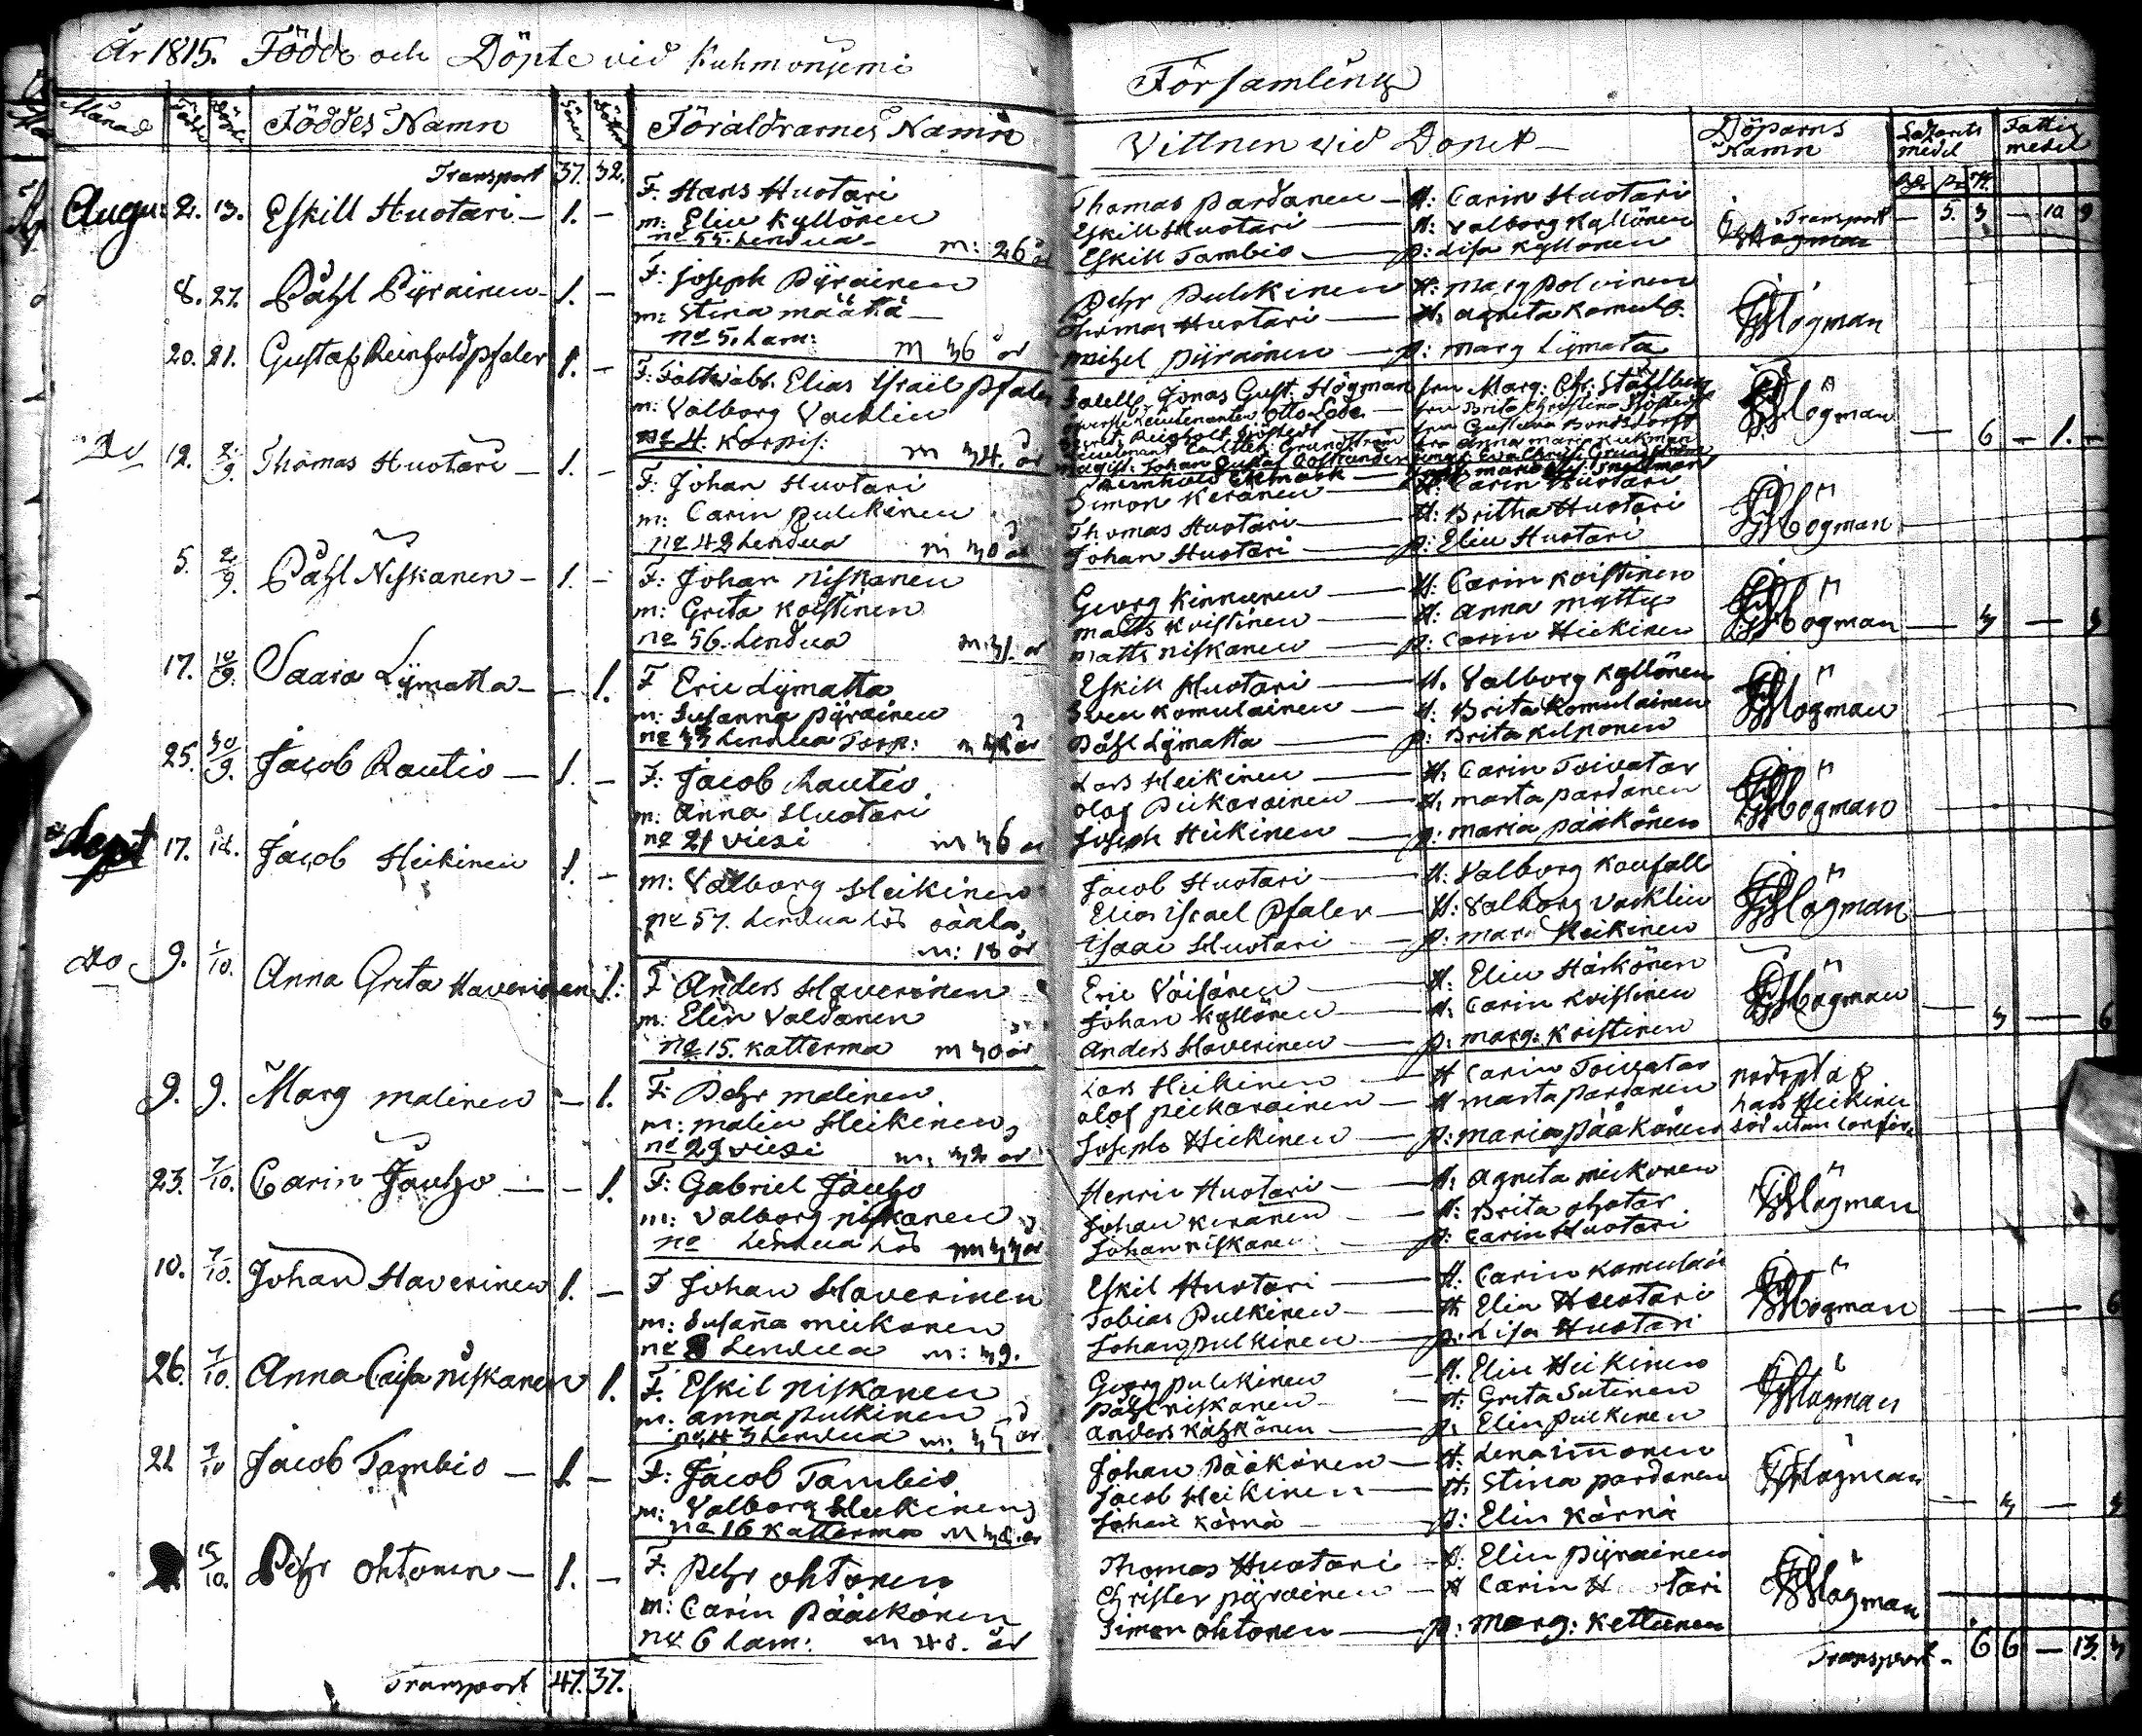 År 1815. Födde och Döpte vid Kuhmoniemi Församling
Månad Född Döpt Föddes Namn Söner Döttrar Föräldrarnes Namn Vittnen vid Dopet Döparns Namn Lazarets medel Fattig medel
Transport 37. 32.
Transport — 5. 3 — 10 9
Augu: 2. 13. Eskill Huotari — 1. —
F: Hans Huotari
m: Elin Kyllönen
no 55. Lendua m: 26 år
Thomas Pardanen — H: Carin Huotari
Eskill Huotari — H: Valborg Kyllönen
Eskill Tambio — p: Lisa Kyllönen
Högman
8. 27. Påhl Pyrainen — 1. —
F: Joseph Pyrainen
m: Stina Määttä —
no 5. Lam: m 36 år
Pehr Pulkinen — H: Marg Polvinen
Thomas Huotari — H: Agneta Komul.
Michel Pyrainen — p: Marg Lymatta
Högman
20. 21. Gustaf Reinhold Pfaler 1. —
F: Fältwäb. Elias Israël Pfaler
m: Valborg Vacklin
no 4. Korpis: m 34. år
Jonas Gust: Högman fru Marg: Chr: Ståhlberg
Otto Lode — fru Brita Christina
Högman
— 6 — 1. —
Do 12. 2/9. Thomas Huotari — 1. —
F: Johan Huotari
m: Carin Pulkinen
no 42 Lendua m 30 år
Simon Keränen — H: Carin Huotari
Thomas Huotari — H: Britha Huotari
Johan Huotari — p: Elin Huotari
Högman
5. 2/9. Påhl Niskanen — 1. —
F: Johan Niskanen
m: Greta Koistinen
no 56. Lendua m: 31. år
Georg Kinnunen — H: Carin Koistinen
Matts Koistinen — H: Anna
Matts Niskanen — p: Carin Heikinen
Högman — 3 — 3
17. 10/9. Saara Lymatta — — 1.
F Eric Lymatta
m: Susanna Pyrainen
no 33 Lendua Torp: m år
Eskill Huotari — H. Valborg Kyllönen
Sven Komulainen — H: Brita Komulainen
Påhl Lymatta — p: Brita Kilponen
Högman
25. 30/9. Jacob Rautio — 1. —
F: Jacob Rautio
m: Anna Huotari
no 21 Viesi m 36 år
Lars Heikinen — H: Carin Toivatar
Olof Piikarainen — H. Marta Pardanen
Joseph Heikinen — p: Maria Pääkönen
Högman
Sept 17. 12. Jacob Heikinen 1. —
m: Valborg Heikinen
no 57. Lendua lös
m: 18 år
Jacob Huotari — H: Valborg
Elias Israel Pfaler — H: Valborg Vacklin
Isaac Huotari — p: Mar: Heikinen
Högman
Do 9. 1/10. Anna Greta Haverinen 1.
F Anders Haverinen
m: Elin Valdanen
no 15. Katterma m 30 år
Eric Väisänen — H. Elin Härkönen
Johan Kyllönen — H. Carin Koistinen
Anders Haverinen — p: Marg: Koistinen
Högman — 3 — 6
9. 9. Marg Malinen — 1.
F: Pehr Malinen
m: Malin Heikinen
no 29 Viesi m: 32 år
Lars Heikinen — H Carin Toivatar
Olof Piikarainen — H Marta Pardanen
Joseph Heikinen — p: Maria Pääkönen
nöddöpt af
Lars Heikinen
23. 7/10. Carin Jauho — — 1.
F: Gabriel Jauho
m: Valborg Niskanen
no Lendua lös m 33 år
Henric Huotari — H. Agneta Meikonen
Johan Keränen — H: Brita Ohotar
Johan Niskanen — p: Carin Huotari
Högman
10. 7/10. Johan Haverinen 1. —
F Johan Haverinen
m: Susanna Meikonen
no 8 Lendua m: 39.
Eskil Huotari — H: Carin Komulain
Tobias Pulkinen — H: Elin Huotari
Johan Pulkinen — p: Lisa Huotari
Högman — — 6
26. 7/10. Anna Caisa Niskanen 1.
F. Eskil Niskanen
m: Anna Pulkinen
no 43 Lendua m: år
Georg Pulkinen — H. Elin Heikinen
Påhl Niskanen — H: Greta Sutinen
Anders Kähkönen — p. Elin Pulkinen
Högman
21 7/10 Jacob Tambio — 1 —
F: Jacob Tambio
m: Valborg Heikinen
no 16 Katterma m 32. år
Johan Pääkönen — H: Lena Immonen
Jacob Heikinen — H. Stina Pardanen
Johan Kärnä — p: Elin Kärnä
Högman — 3 — 3
15/10. Pehr Ohtonen — 1. —
F. Pehr Ohtonen
m: Carin Pääkönen
no 6 Lam: m 28. år
Thomas Huotari — H: Elin Pyrainen
Christer Pyrainen — H Carin Huotari
Simon Ohtonen — p: Marg: Kettunen
Högman
Transport 47. 37.
Transport — 6 6 — 13. 3